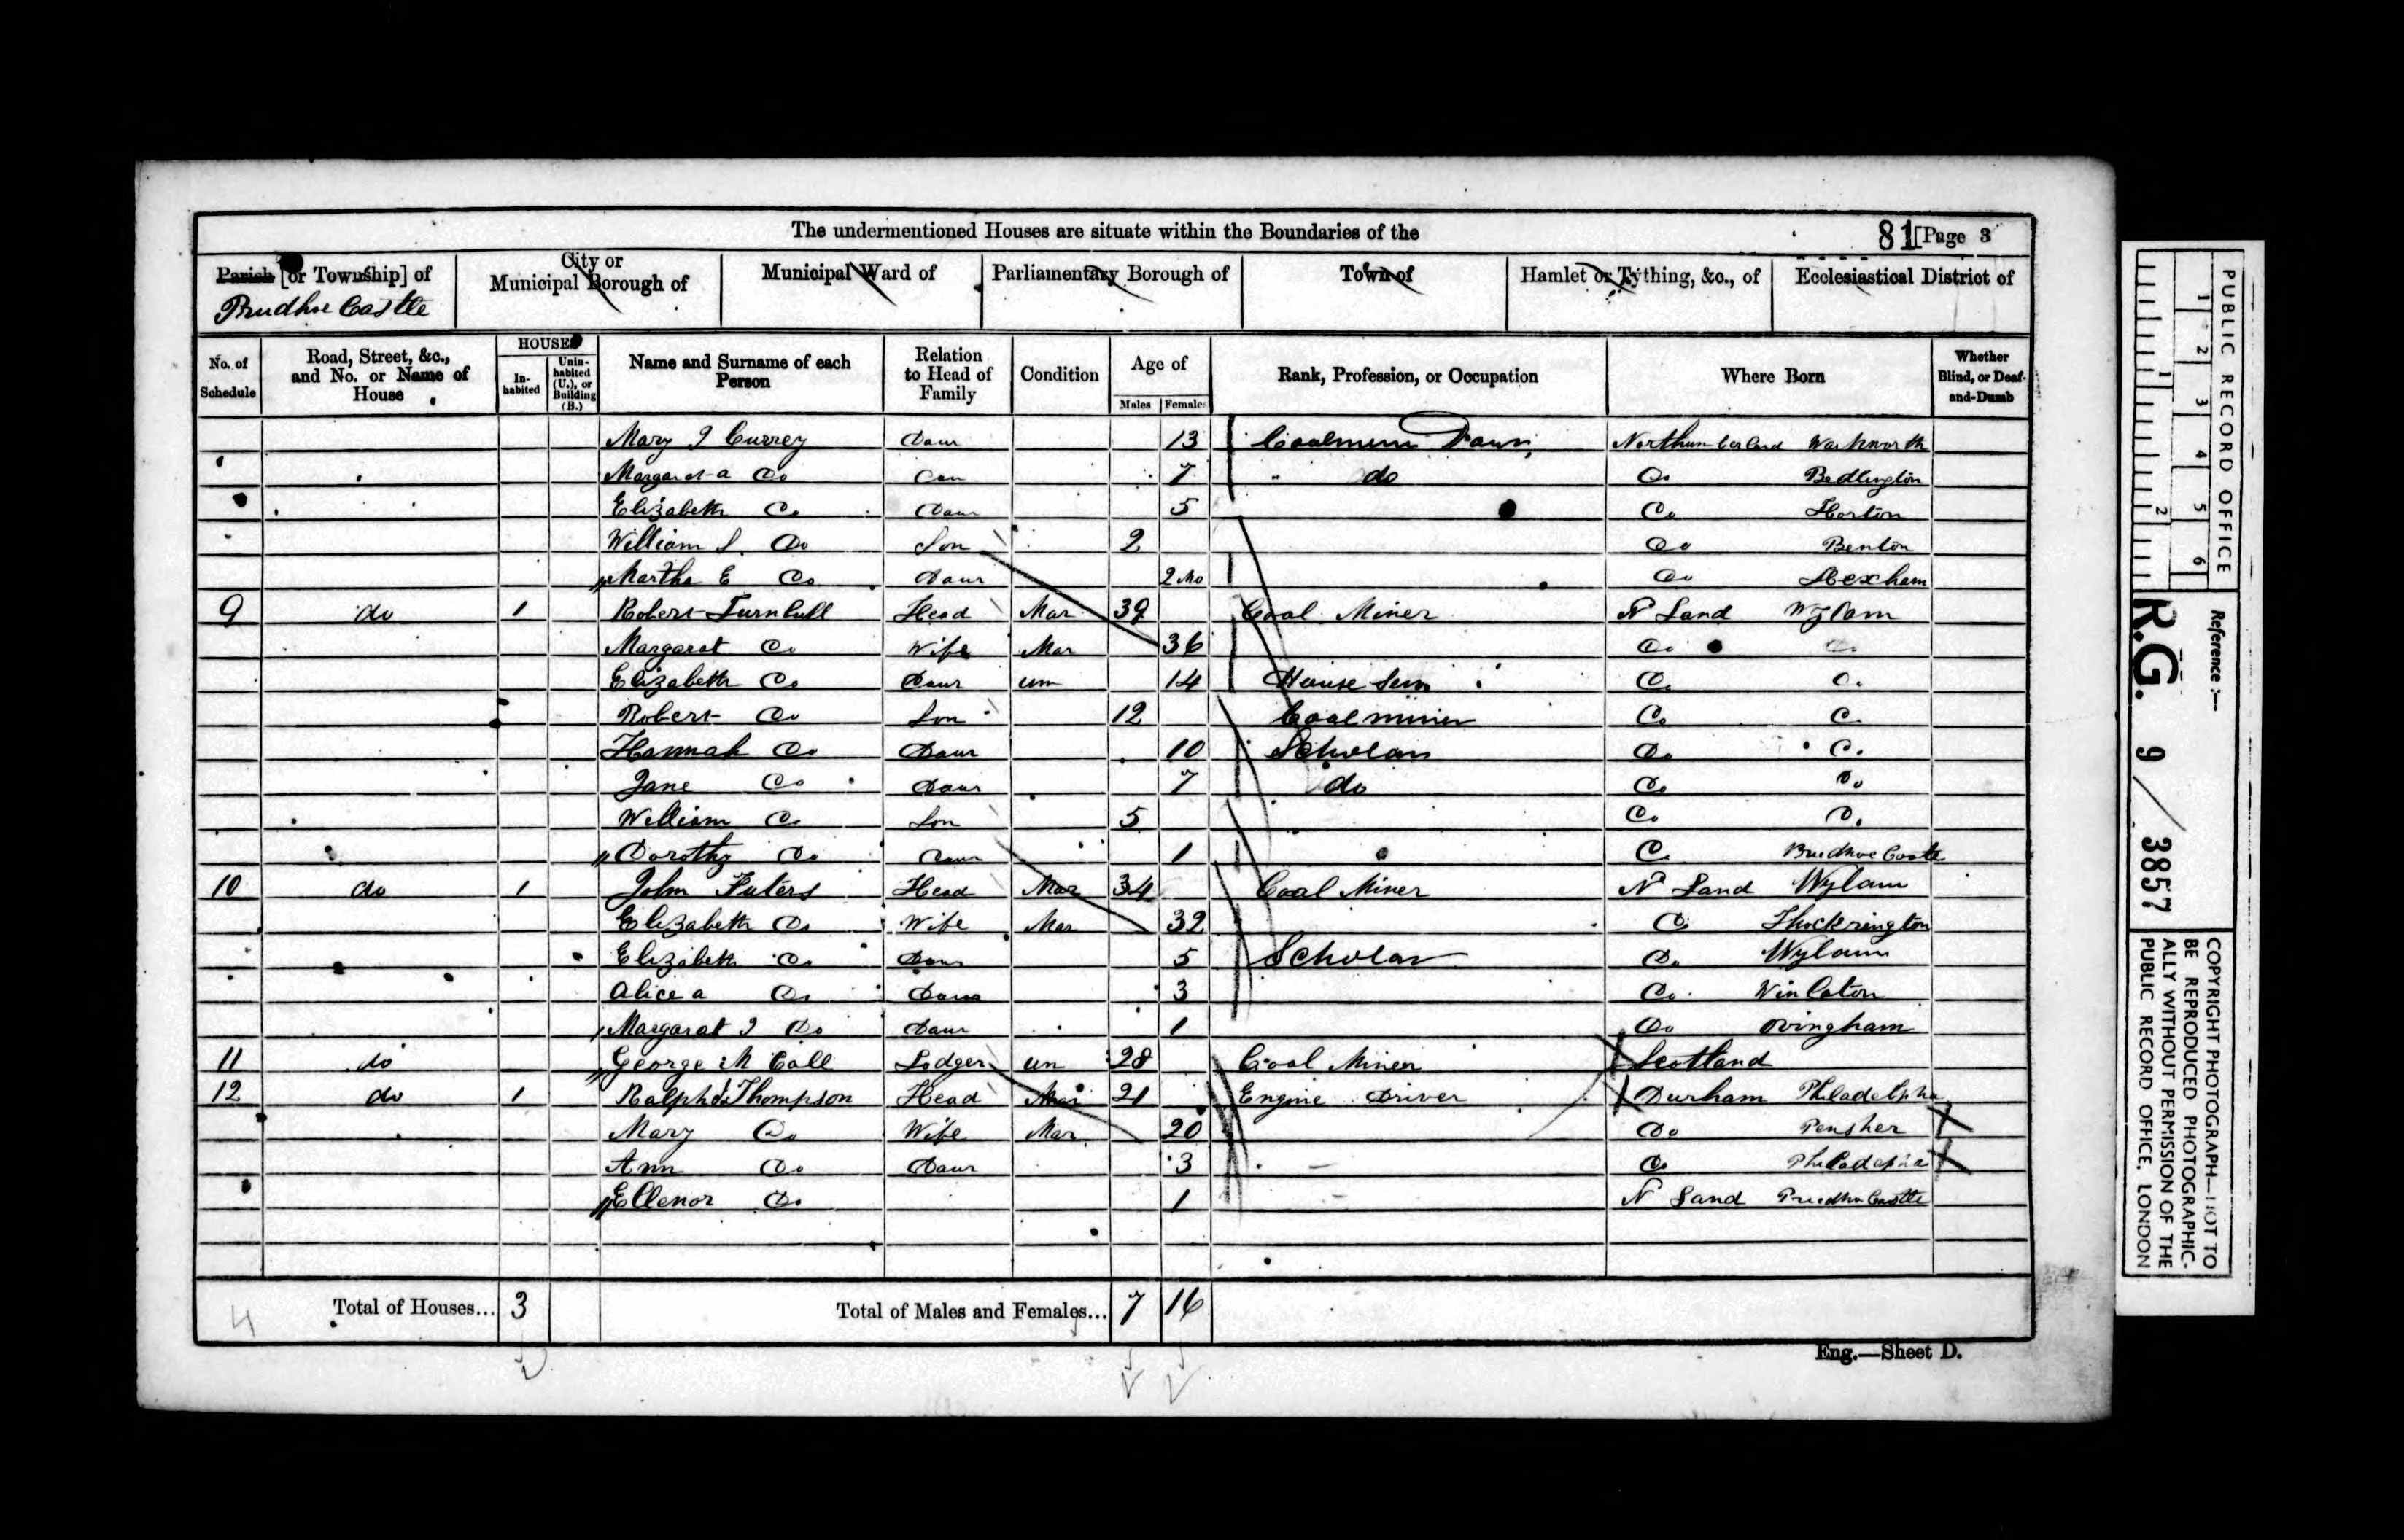 The undermentioned Houses are situate within the Boundaries of the
81 [Page 3
Parish [or Township] of
Prudhoe Castle
City or Municipal Borough of
Municipal Ward of
Parliamentary Borough of
Town of
Hamlet or Tything, &c., of
Ecclesiastical District of
No. of Schedule
Road, Street, &c., and No. or Name of House
HOUSES
In-habited
Unin-habited (U.), or Building (B.)
Name and Surname of each Person
Relation to Head of Family
Condition
Age of
Males Females
Rank, Profession, or Occupation
Where Born
Whether Blind, or Deaf-and-Dumb
Mary J Currey Daur 13 Coalminer Daur Northumberland Warkworth
Margaret a Do Daur 7 " do Do Bedlington
Elizabeth Do Daur 5 Do Horton
William S. Do Son 2 Do Benton
Martha E Do Daur 2 Mo Do Hexham
9 do 1 Robert Turnbull Head Mar 39 Coal Miner N Land Wylam
Margaret Do Wife Mar 36 Do Do
Elizabeth Do Daur un 14 House Serv Do Do
Robert Do Son 12 Coalminer Do Do
Hannah Do Daur 10 Scholar Do Do
Jane Do Daur 7 do Do Do
William Do Son 5 Do Do
Dorothy Do Daur 1 Do Prudhoe Castle
10 do 1 John Futers Head Mar 34 Coal Miner N Land Wylam
Elizabeth Do Wife Mar 32 Do Thockrington
Elizabeth Do Daur 5 Scholar Do Wylam
Alice a Do Daur 3 Do Winlaton
Margarat J Do Daur 1 Do Ovingham
11 do George Mc Call Lodger un 28 Coal Miner Scotland
12 do 1 Ralph Thompson Head Mar 21 Engine Driver Durham Philadelpha
Mary Do Wife Mar 20 Do Pensher
Ann Do Daur 3 Do Philadepha
Ellenor Do 1 N Land Prudhoe Castle
4 Total of Houses... 3 Total of Males and Females... 7 16
Eng.—Sheet D.
PUBLIC RECORD OFFICE
1 2 3 4 5 6
1 2
Reference :—
R.G. 9 / 3857
COPYRIGHT PHOTOGRAPH—NOT TO
BE REPRODUCED PHOTOGRAPHIC-
ALLY WITHOUT PERMISSION OF THE
PUBLIC RECORD OFFICE, LONDON